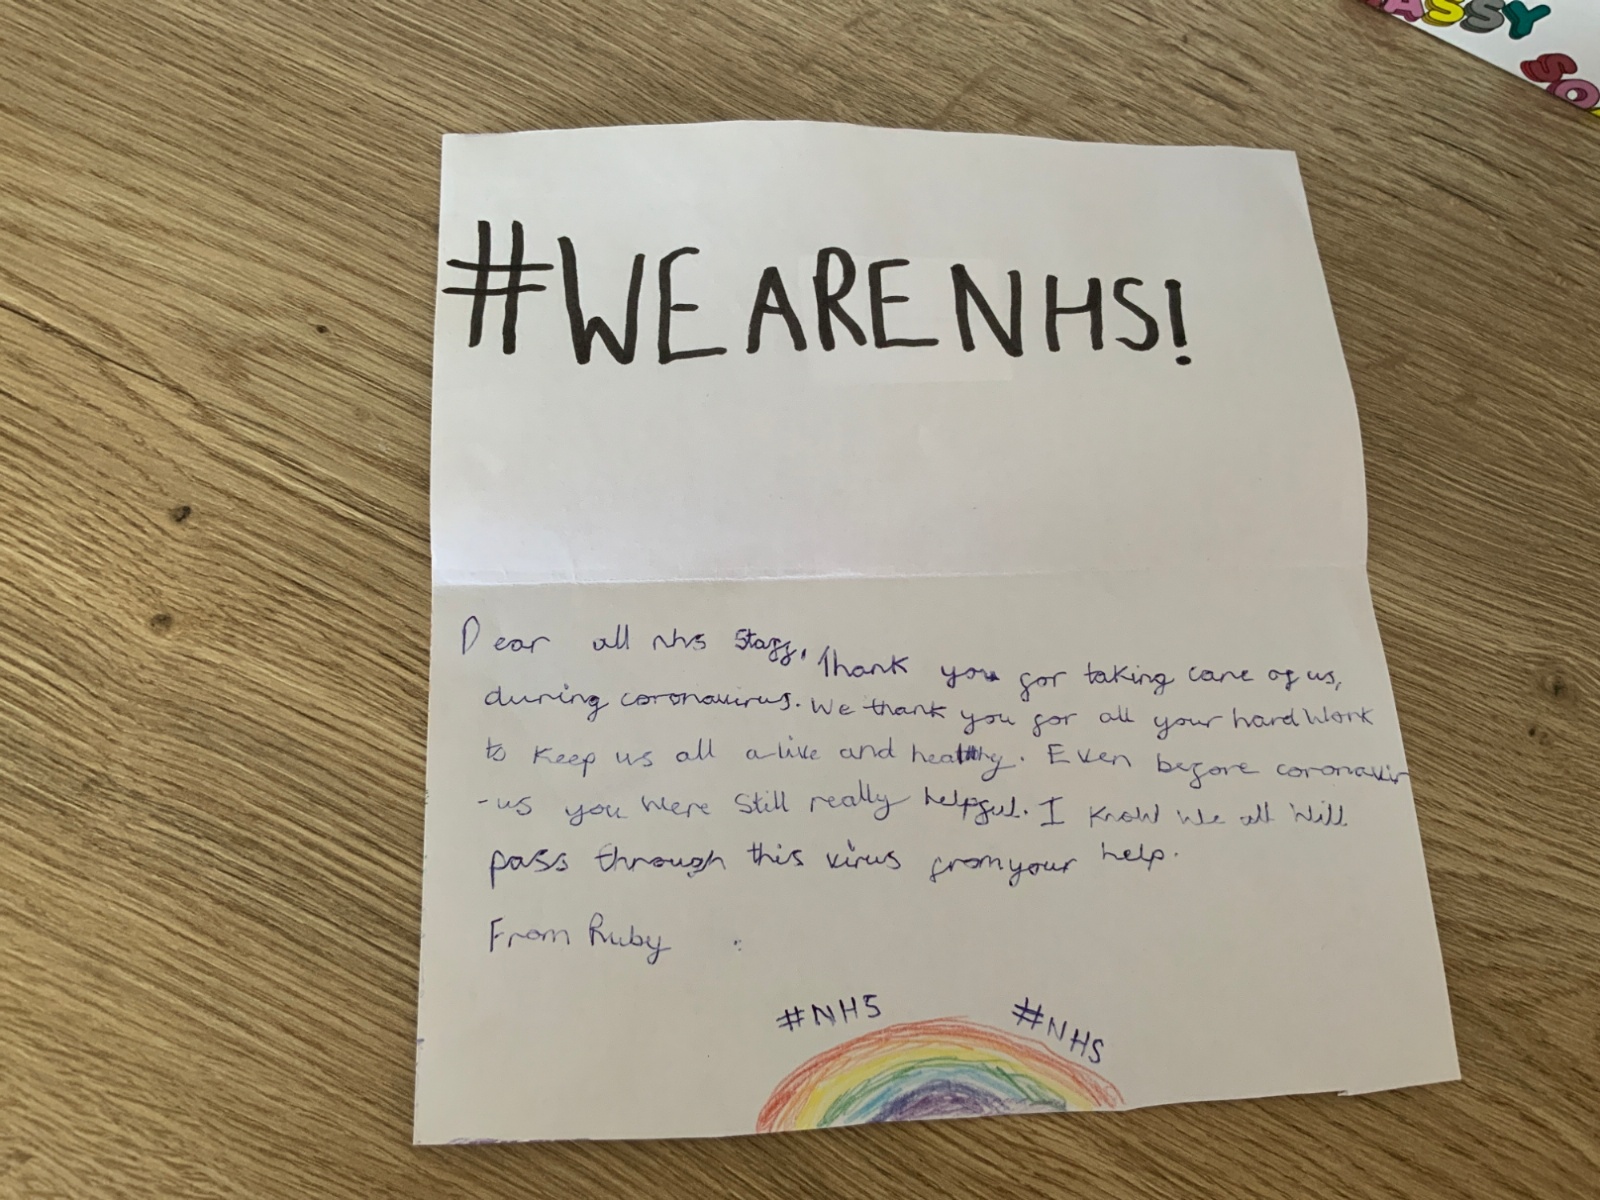 ASSY
SO
#WE ARE NHS!
Dear all nhs staff, Thank you for taking care of us,
during coronavirus. We thank you for all your hard work
to keep us all a-live and healthy. Even before coronavir
-us you were still really helpful. I know we all will
pass through this virus from your help.
From Ruby
#NHS #NHS